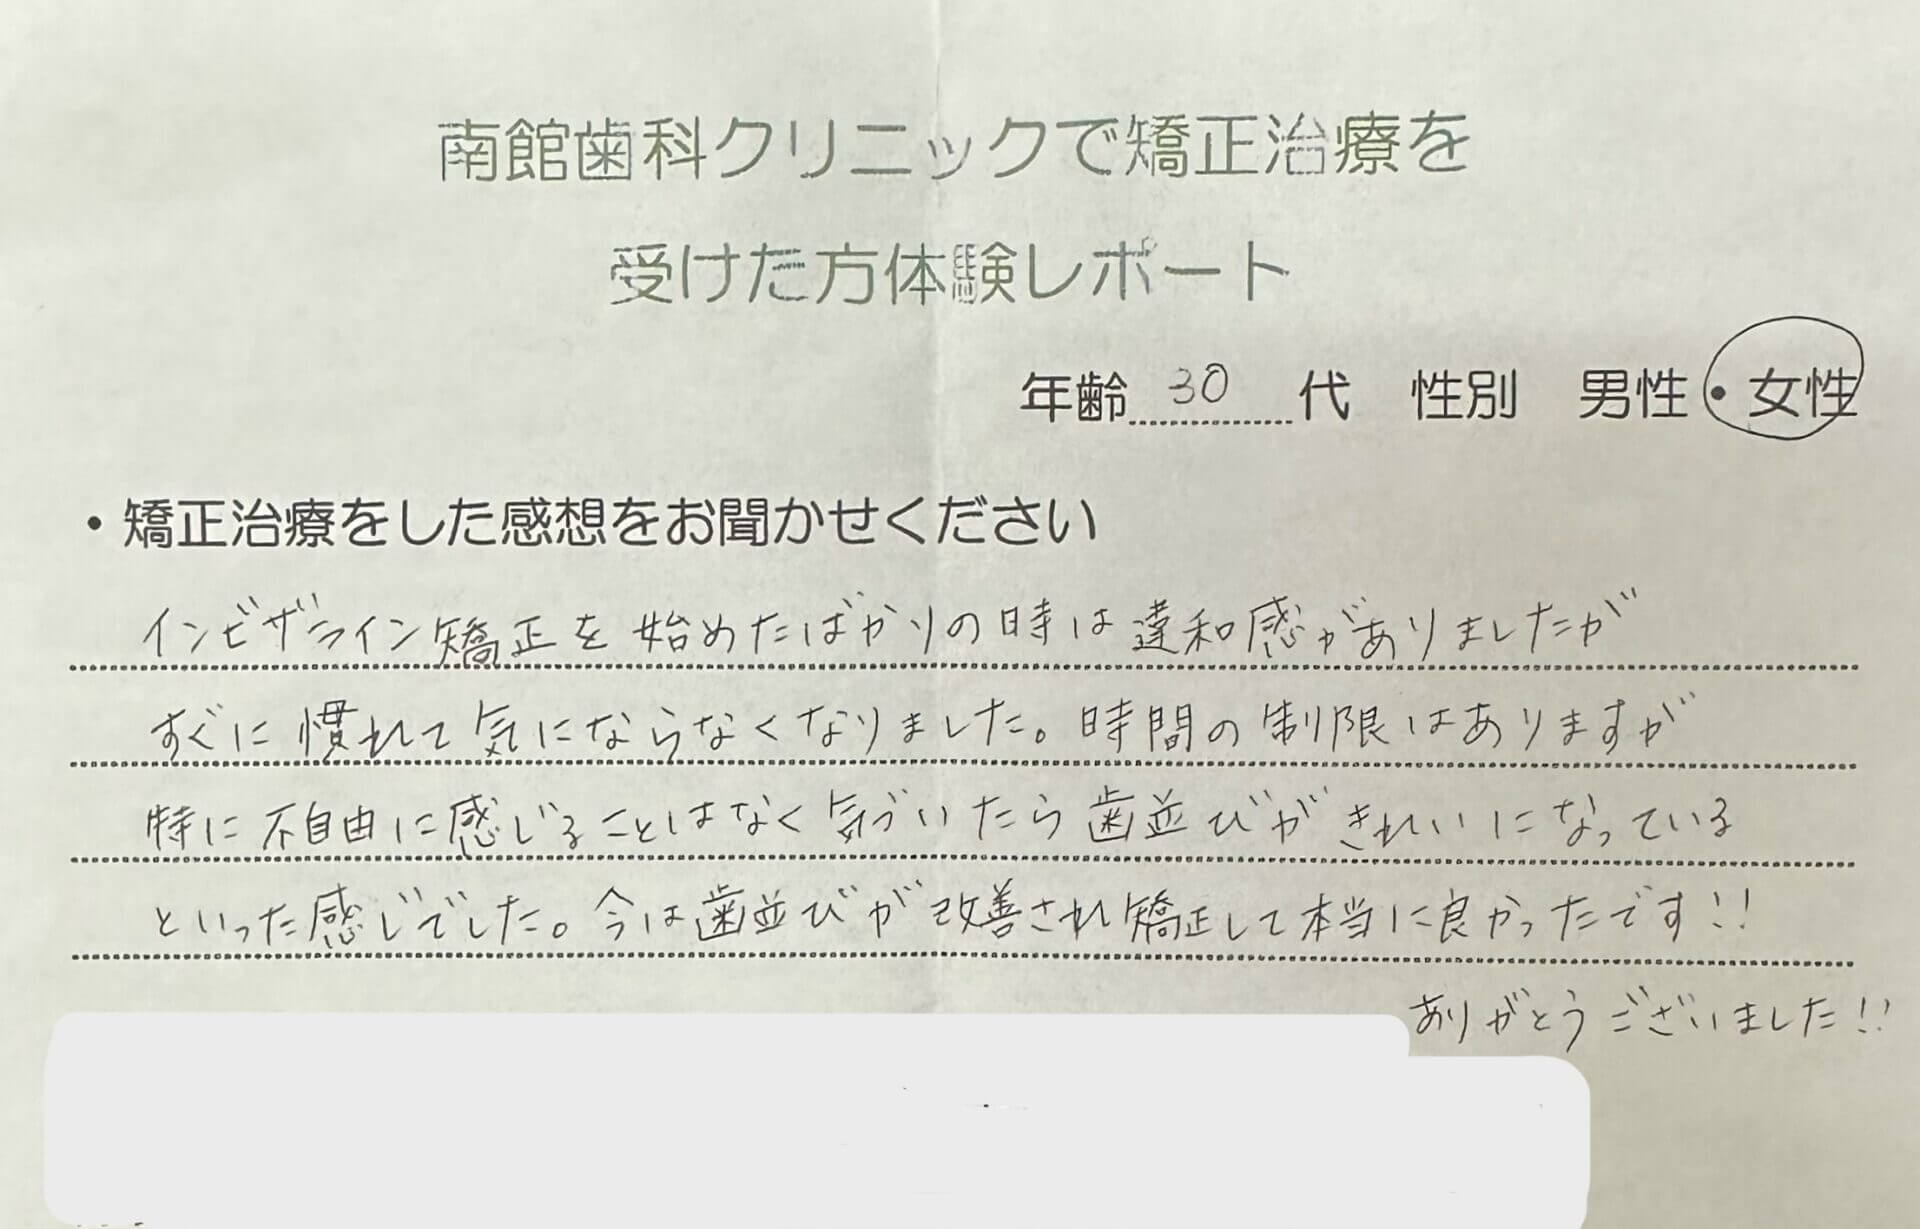 南館歯科クリニックで矯正治療を
受けた方体験レポート
年齢 30 代 性別 男性・女性
・矯正治療をした感想をお聞かせください
インビザライン矯正を始めたばかりの時は違和感がありましたが
すぐに慣れて気にならなくなりました。時間の制限はありますが
特に不自由に感じることはなく気づいたら歯並びがきれいになっている
といった感じでした。今は歯並びが改善され矯正して本当に良かったです!!
ありがとうございました!!